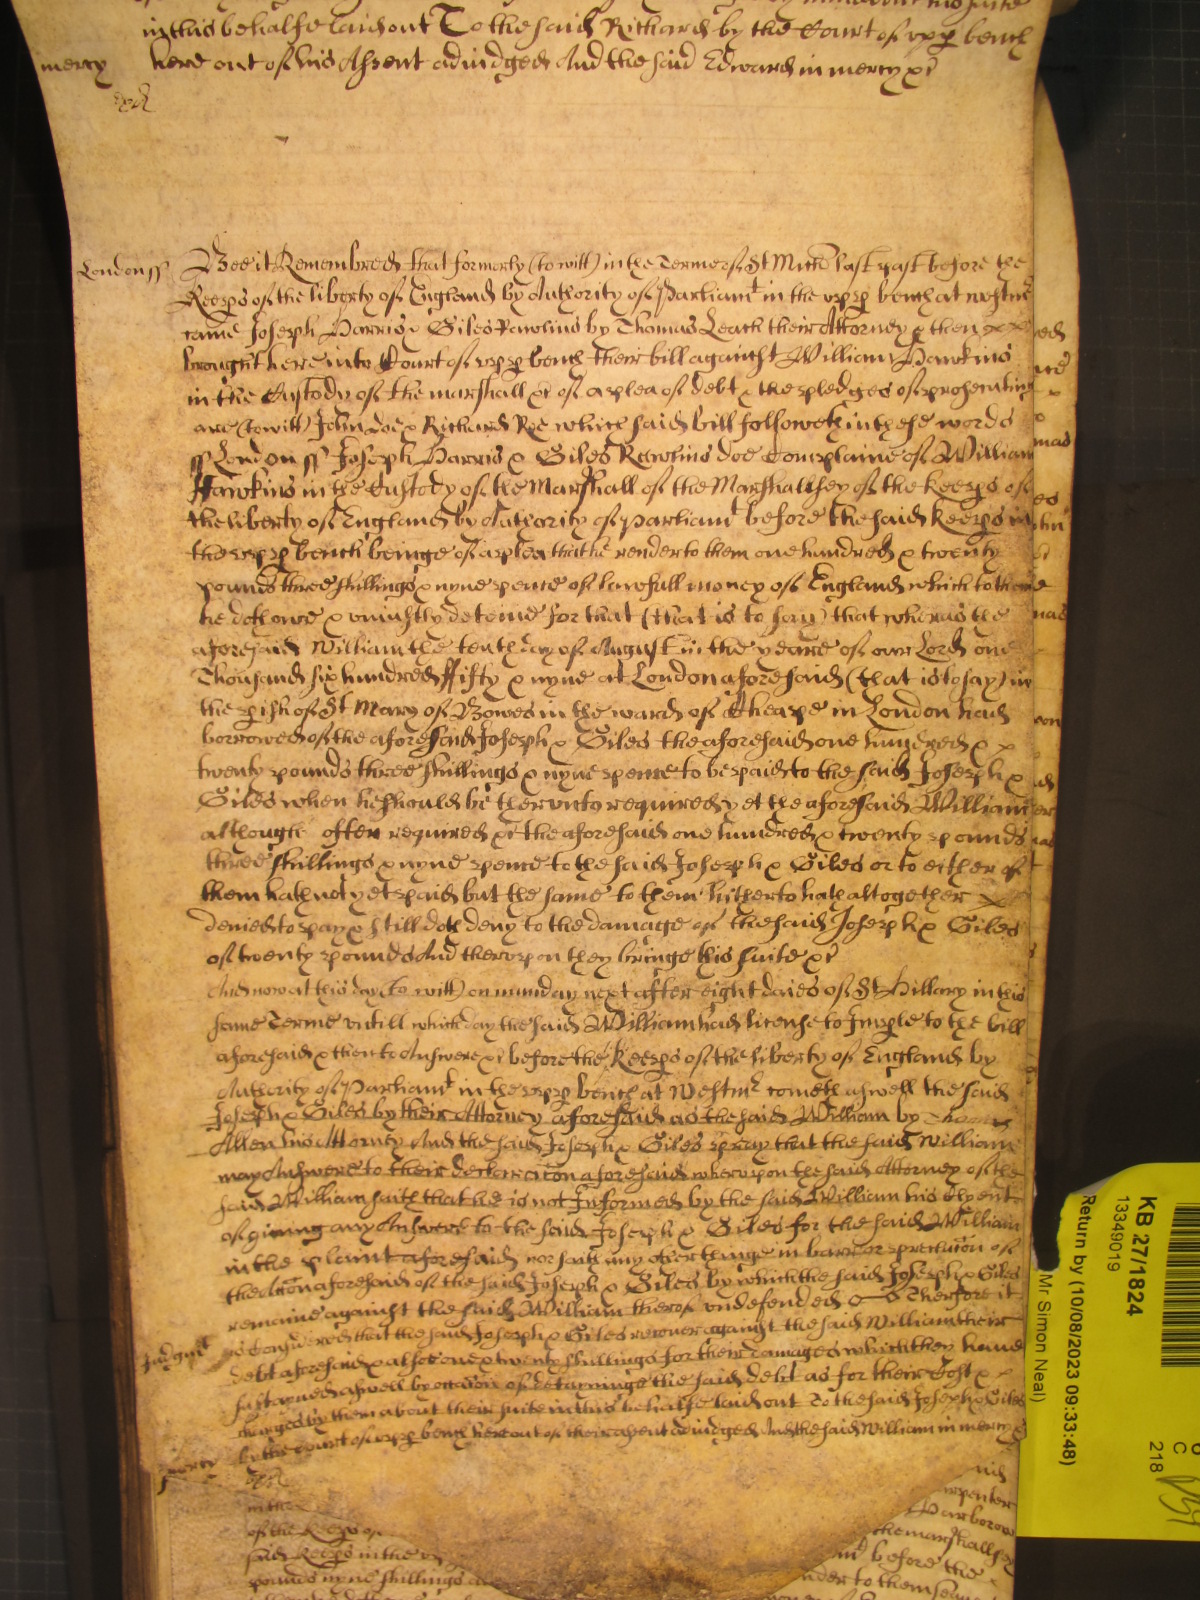 in this behalfe laid out To the said Richard by the Court of upp bench
mercy here out of his Assent adiudged And the said Edward in mercy &c
London ss Bee it Remembred that formerly (to witt) in the Terme of St Mich last past before the
Keeps of the liberty of England by Authority of Parliamt in the upp bench at Westmr
came Joseph Harris & Giles Rawlins by Thomas Leach their Attorney & then
brought here into Court of upp bench their bill against William Hawkins
in the Custody of the marshall &c of a plea of debt & the pledges of prosecuting
are (to witt) John Doe & Richard Roe which said bill followeth in these words
ss London ss Joseph Harris & Giles Rawlins doe Complaine of William
Hawkins in the Custody of the Marshall of the Marshallsey of the Keeps of
the liberty of England by Authority of Parliamt before the said Keeps in
the upp bench beinge of a plea that he render to them one hundred & twenty
pounds three shillings & nyne pence of lawfull money of England which to them
he doth owe & uniustly deteine for that (that is to say) that wheras the
aforesaid William the tenth day of August in the yeare of our Lord one
Thousand six hundred ffifty & nyne at London aforesaid (that is to say) in
the pish of St Mary of Bowes in the ward of Cheape in London had
borrowed of the aforesaid Joseph & Giles the aforesaid one hundred &
twenty pounds three shillings & nyne pence to be paid to the said Joseph &
Giles when he should be therunto required yet the aforesaid William
although often required &c the aforesaid one hundred & twenty pounds
three shillings & nyne pence to the said Joseph & Giles or to either of
them hath not yet paid but the same to them hitherto hath altogether
denied to pay & still doth deny to the damage of the said Joseph & Giles
of twenty pounds And therupon they bringe this suite &c
And now at this day (to witt) on munday next after eight daies of St Hillary in this
same Terme untill which day the said William had license to Imple to the bill
aforesaid & then to Answere &c before the Keeps of the liberty of England by
Authority of Parliamt in the upp bench at Westmr cometh aswell the said
Joseph & Giles by their Attorney aforesaid as the said William by Thomas
Allen his Attorney And the said Joseph & Giles pray that the said William
may Answere to their declaracion aforesaid wherupon the said Attorney of the
said William saith that he is not Informed by the said William his Clyent
of giving any Answere to the said Joseph & Giles for the said William
in the plaint aforesaid nor saith any other thinge in barr or preclucion of
the Accon aforesaid of the said Joseph & Giles by which the said Joseph & Giles
remaine against the said William therof undefended Therfore it
Judgmt is Considered that the said Joseph & Giles recover against the said William their
debt aforesaid & alsoe one & twenty shillings for their damages which they have
sustayned aswell by occasion of detayninge the said debt as for their Cost &
charges by them about their suite in this behalfe laid out To the said Joseph & Giles
mercy by the Court of upp bench here out of their assent adiudged And the said William in mercy &c
in the
of the Keeps of
said Keeps in the upp
pounds nyne shillings
the marshallsey
before the
KB 27/1824
13349019
Return by (10/08/2023 09:33:48)
Mr Simon Neal)
C
218